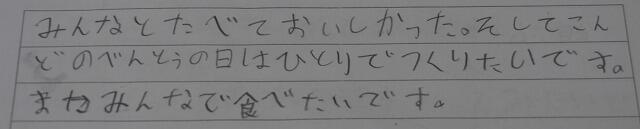 みんなとたべておいしかった。そしてこん
どのべんとうの日はひとりでつくりたいです。
またみんなで食べたいです。